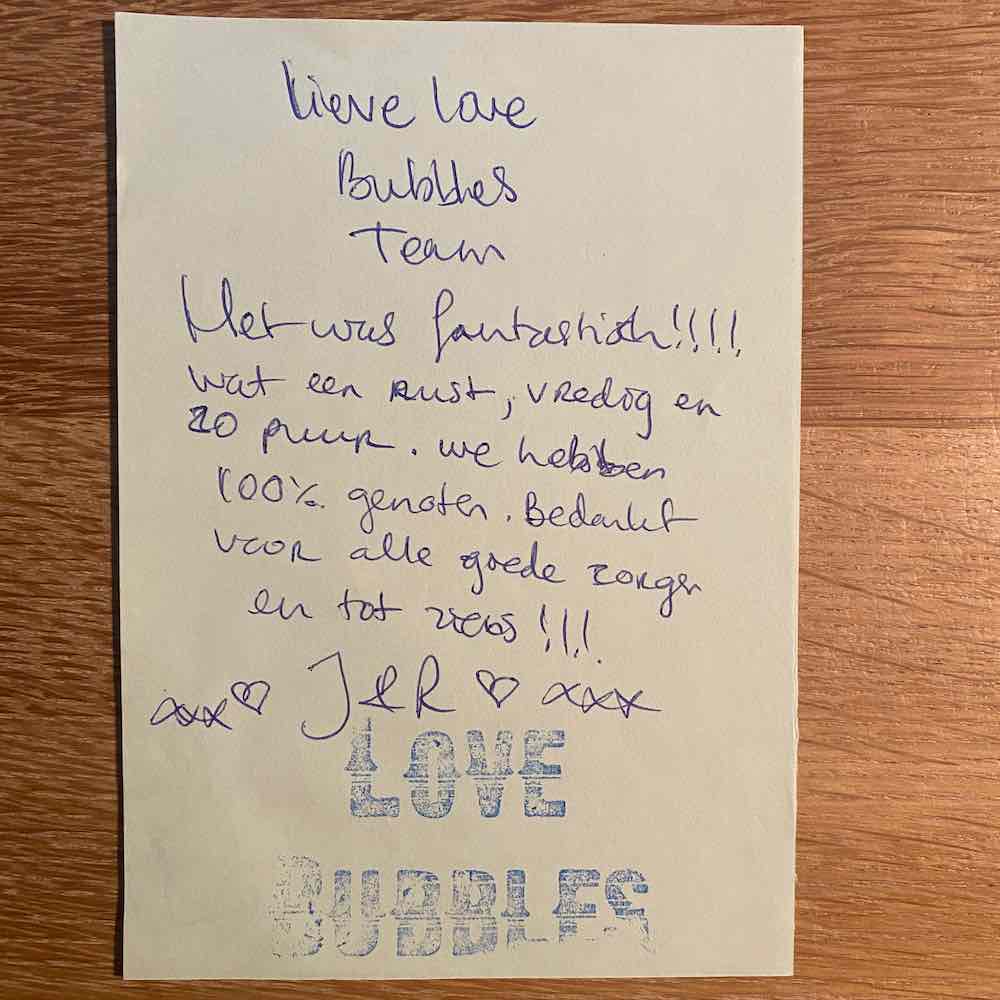 Lieve Love
Bubbles
Team
Het was fantastisch!!!!
wat een rust, vredig en
zo puur. we hebben
100% genoten. Bedankt
voor alle goede zorgen
en tot ziens!!!
xxx♡ J&R ♡ xxx
LOVE
BUBBLES